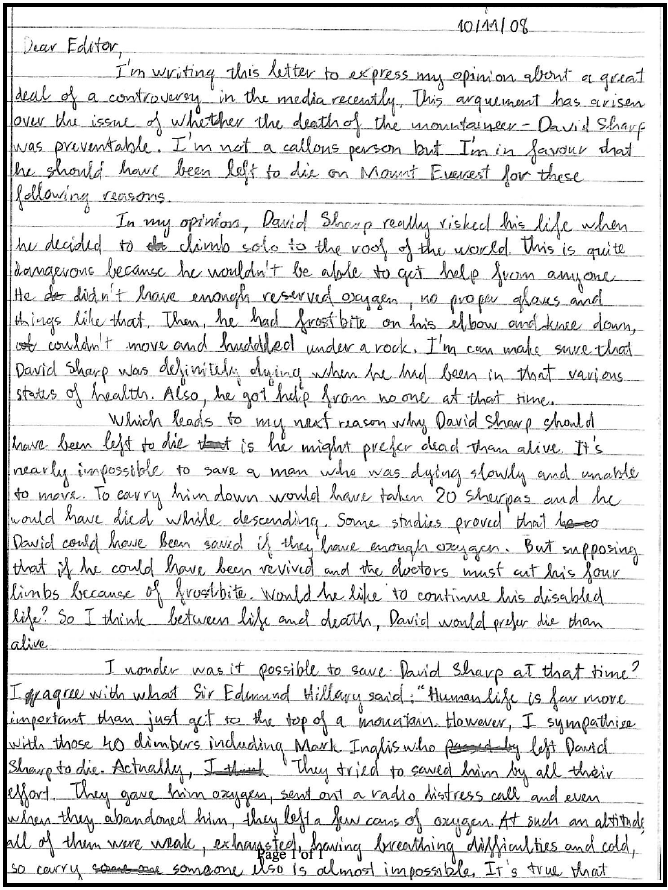 10/11/08
Dear Editor,
I'm writing this letter to express my opinion about a great
deal of a controversy in the media recently. This arguement has arisen
over the issue of whether the death of the mountaineer - David Sharp
was preventable. I'm not a callous person but I'm in favour that
he should have been left to die on Mount Everest for these
following reasons.
In my opinion, David Sharp really risked his life when
he decided to climb solo to the roof of the world. This is quite
dangerous because he wouldn't be able to get help from anyone.
He didn't have enough reserved oxygen, no proper gloves and
things like that. Then, he had frostbite on his elbow and knee down,
couldn't move and huddled under a rock. I'm can make sure that
David Sharp was definitely dying when he had been in that various
status of health. Also, he got help from no one at that time.
Which leads to my next reason why David Sharp should
have been left to die that is he might prefer dead than alive. It's
nearly impossible to save a man who was dying slowly and unable
to move. To carry him down would have taken 20 sherpas and he
would have died while descending. Some studies proved that
David could have been saved if they have enough oxygen. But supposing
that if he could have been revived and the doctors must cut his four
limbs because of frostbite. Would he like to continue his disabled
life? So I think between life and death, David would prefer die than
alive.
I wonder was it possible to save David Sharp at that time?
I agree with what Sir Edmund Hillary said: "Human life is far more
important than just get to the top of a mountain. However, I sympathise
with those 40 climbers including Mark Inglis who passed by left David
Sharp to die. Actually, I think They tried to saved him by all their
effort. They gave him oxygen, sent out a radio distress call and even
when they abandoned him, they left a few cans of oxygen. At such an altitude,
all of them were weak, exhausted, having breathing difficulties and cold,
so carry some one someone else is almost impossible. It's true that
Page 1 of 1